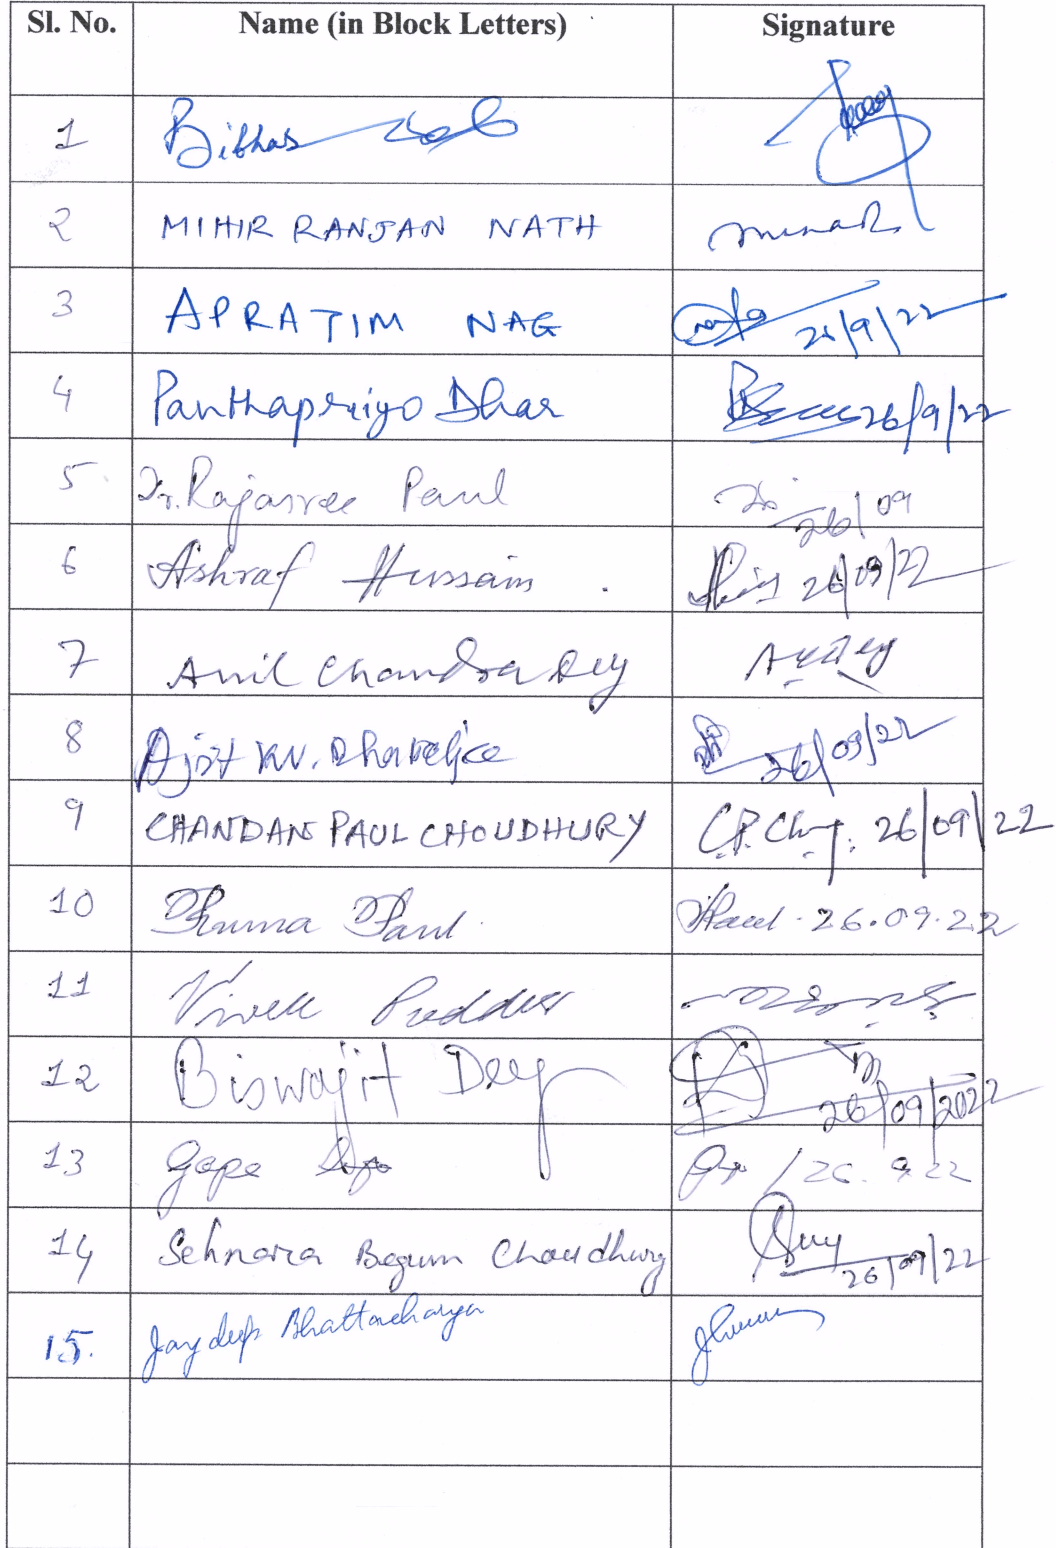 Sl. No. Name (in Block Letters) Signature
1 Bibhas Deb
2 MIHIR RANJAN NATH
3 APRATIM NAG 26/9/22
4 Panthapriyo Dhar 26/9/22
5 Dr. Rajasree Paul 26/09
6 Ashraf Hussain . 26/09/22
7 Anil Chandra Dey A C Dey
8 Ajit Kr. 26/09/22
9 CHANDAN PAUL CHOUDHURY C.P. Chy. 26/09/22
10 Paul. Paul. 26.09.22
11 Vivek Poddar
12 Biswajit Dey 26/09/2022
13 / 26. 9 22
14 Sehnara Begum Choudhury 26/09/22
15. Jaydeep Bhattacharya